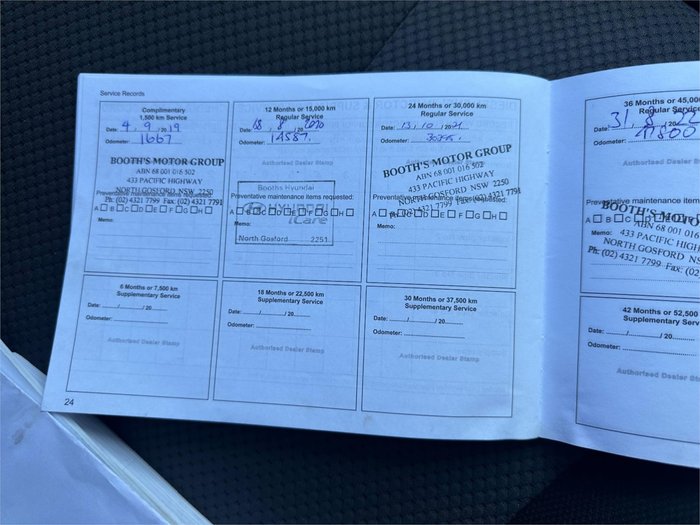 Service Records
Complimentary
1,500 km Service
Date: 4 / 9 / 2019
Odometer: 1667
BOOTH'S MOTOR GROUP
ABN 68 001 016 502
433 PACIFIC HIGHWAY
NORTH GOSFORD NSW 2250
Ph: (02) 4321 7799 Fax: (02) 4321 7791
Preventative maintenance items requested:
A B C D E F G H
Memo:
12 Months or 15,000 km
Regular Service
Date: 18 / 8 / 2020
Odometer: 14587
Authorised Dealer Stamp
Booths Hyundai
HYUNDAI
iCare
North Gosford 2251
Preventative maintenance items requested:
A B C D E F G H
Memo:
24 Months or 30,000 km
Regular Service
Date: 13 / 10 / 2021
Odometer:
Authorised Dealer Stamp
BOOTH'S MOTOR GROUP
ABN 68 001 016 502
433 PACIFIC HIGHWAY
NORTH GOSFORD NSW 2250
Ph: (02) 4321 7799 Fax: (02) 4321 7791
Preventative maintenance items requested:
A B C D E F G H
Memo:
36 Months or 45,00
Regular Serv
Date: 31 / 8 / 2022
Odometer: 47800
Authorised Dealer
Preventative maintenance items
A B C D
Memo:
BOOTH'S MOTO
ABN 68 001 016
433 PACIFIC HIGH
NORTH GOSFORD NS
Ph: (02) 4321 7799 Fax: (0
6 Months or 7,500 km
Supplementary Service
Date: ......../......../ 20........
Odometer:
Authorised Dealer Stamp
18 Months or 22,500 km
Supplementary Service
Date: ......../......../ 20........
Odometer:
Authorised Dealer Stamp
30 Months or 37,500 km
Supplementary Service
Date: ......../......../ 20........
Odometer:
Authorised Dealer Stamp
42 Months or 52,500
Supplementary Serv
Date: ......../......../ 20........
Odometer:
Authorised Dealer Sta
24